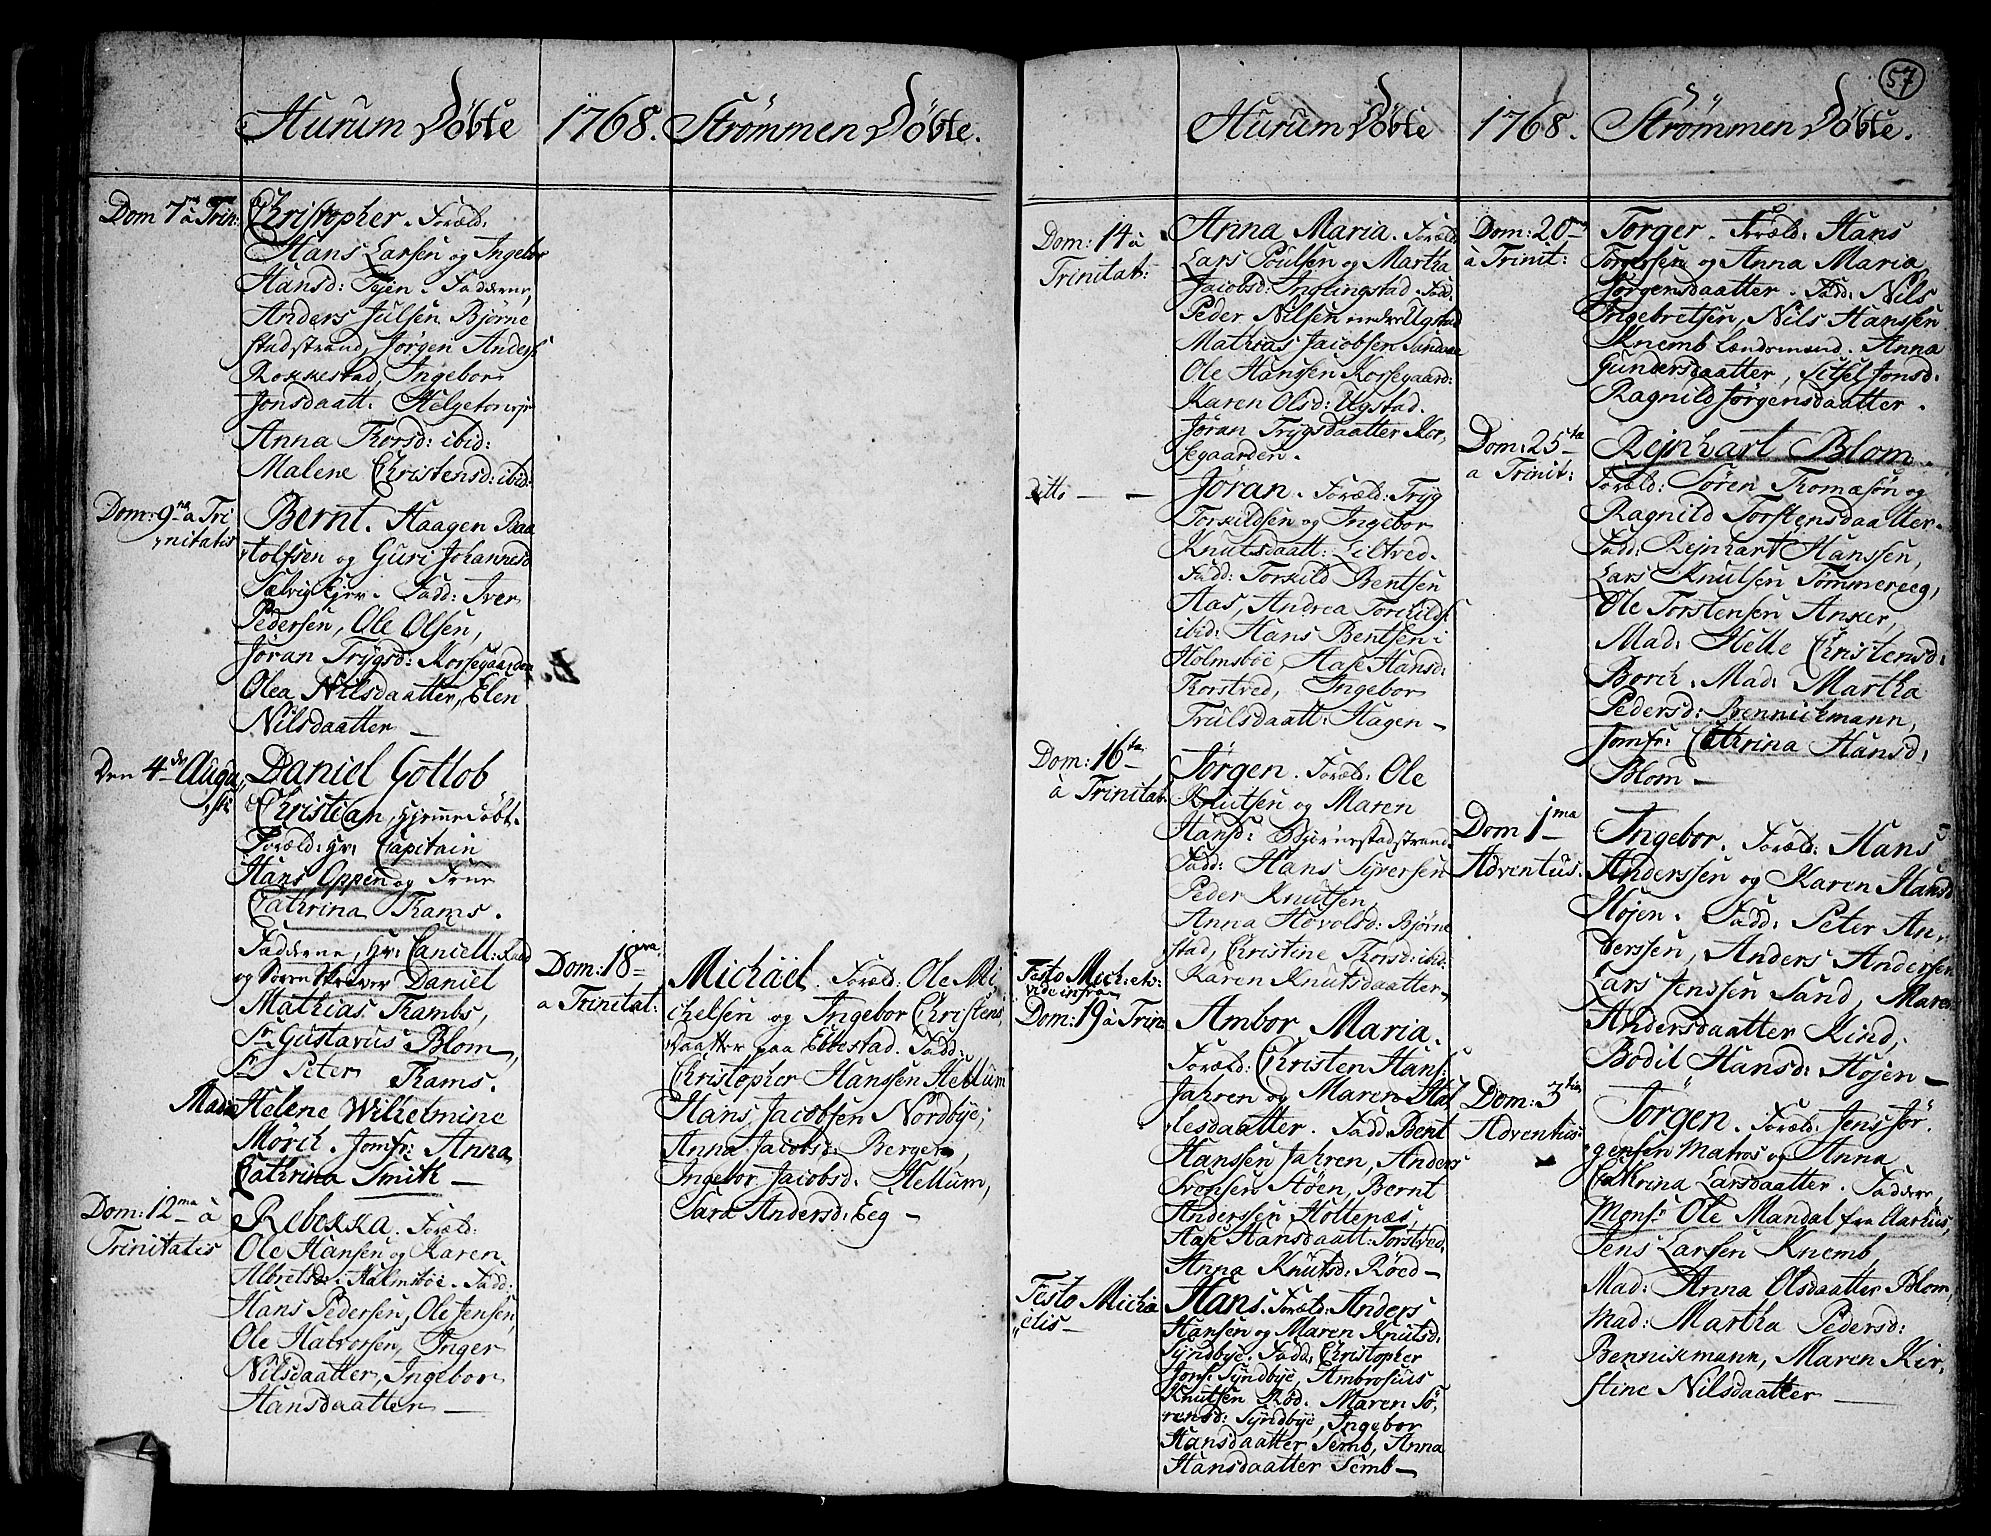 Hurum Døbte 1768. Strømmen Døbte.
Dom 7ma à Trin:
Christopher. Foræld:
Hans Larsen og Ingebor
Hansd: Tejen. Fadderne,
Anders Julsen Bjørne
stadstrand, Jørgen Anders
Rokkestad, Ingebor
Jonsdaatt:
Anna Thorsd: ibid:
Malene Christensd: ibid:
Dom: 9na à Tri
nitatis
Bernt. Haagen Raa
Guri Johannesd
Fadd: Iver
Pedersen, Ole Olsen,
Jøran Trygsd: Korsegaarden
Olea Nilsdaatter, Elen
Nilsdaatter —
Den 4de Augu
sti
Daniel Gotlob
Christian, hjemedøbt.
Foræld: Hr: Capitain
Hans Oppen og Frue
Cathrina Thams.
Fadderne, Hr: Cancell: Raad
og Soren Skriver Daniel
Mathias Thambs,
Sr Gustavus Blom,
Sr Peter Thams.
Mad: Helene Wilhelmine
Mørch. Jomfr: Anna
Cathrina Smith —
Dom: 12ma à
Trinitatis
Rebekka. Foræld:
Ole Hansen og Karen
Albretsd: Holmsboe. Fadd:
Hans Pedersen, Ole Jensen,
Ole Halvorsen, Inger
Nilsdaatter, Ingebor
Hansdaatter —
Dom: 18va
a Trinitat:
Michäel. Foræld: Ole Mi
chelsen og Ingebor Christens
daatter paa Ebbestad. Fadd:
Christopher Hanssen Hellum
Hans Jacobsen Nordbye;
Anna Jacobsd: Bergen,
Ingebor Jacobsd: Hellum,
Sara Andersd: Eeg —
57
Hurum Døbte 1768. Strømmen Døbte.
Dom: 14 à
Trinitat:
Anna Maria. Foræld
Lars Poulsen og Martha
Jacobsd: Inglingstad. Fad:
Peder Nilsen nedre Ugstad
Mathias Jacobsen Sandaae
Ole Hanssen Korsegaard:
Karen Olsd: Ugstad.
Jøran Trygsdaatter Kor
segaarden.
Ditto — —
Jöran. Foræld: Tryg
Torkildsen og Ingebor
Knutsdaatt: Liltved.
Fadd: Torkild Bentsen
Aas, Andrea Torchilds
ibid: Hans Bentsen i
Holmsbøe, Aase Hansd:
Thorstved, Ingebor
Trulsdaatt: Hagen —
Dom: 16ta
à Trinitat:
Jørgen. Foræld: Ole
Knutsen og Maren
Hansd: Bjørnestadstrand.
Fadd: Hans Syversen
Peder Knutsen,
Anna Hovolsd: Bjørne
stad, Christine Thorsd: ibid:
Karen Knutsdaatter —
Festo Mich:
vide infra
Dom: 19 à Trin
Ambor Maria.
Foræld: Christen Hans:
Jahren og Maren Hal
lesdaatter. Fadd Bent
Hanssen Jahren, Anders
Svensen Støen, Bernt
Anderssen Holtenæs,
Aase Hansdaatt: Torstved,
Anna Knutsd: Røed —
Festo Micha
elis —
Hans. Foræld: Anders
Hansen og Maren Knutsd:
Syndbye. Fadd: Christopher
Jons: Syndbye, Ambrosius
Knutsen Rød. Maren Sö,
rensd: Syndbye, Ingebor
Hansdaatter Semb, Anna
Hansdaatter Semb —
Dom: 20ma
à Trinit:
Torger. Foræld: Hans
Torgersen og Anna Maria
Jørgensdaatter. Fadd: Nils
Ingebretsen, Nils Hanssen
Knemb Lændsmand. Anna
Gundersdaatter, Sitsel Jonsd:
Ragnild Jørgensdaatter.
Dom: 25ta
a Trinit:
Rejnhart Blom.
Foræld: Søren Thomasøn og
Ragnild Torstensdaatter.
Fadd: Rejnhart Hanssen,
Lars Knutsen Tømmereeg,
Ole Torstensen Anker,
Mad: Helle Christensd:
Borch. Mad: Martha
Pedersd: Bennickmann,
Jomfr: Cathrina Hansd:
Blom —
Dom 1ma
Adventus.
Ingebor. Foræld: Hans
Anderssen og Karen Hansd
Højen. Fadd: Peter An
derssen, Anders Andersen
Lars Jenssen Sand, Maren
Andersdaatter Kind,
Bodil Hansd: Højen —
Dom: 3tia
Adventus
Jørgen. Foræld: Jens Jør
gensen Matros og Anna
Cathrina Larsdaatter. Fadderne,
Monsr Ole Mandal fra Aarhus,
Jens Larsen Knemb
Mad: Anna Olsdaatter Blom,
Mad: Martha Pedersd:
Bennikmann, Maren Kir,
stine Nilsdaatter —